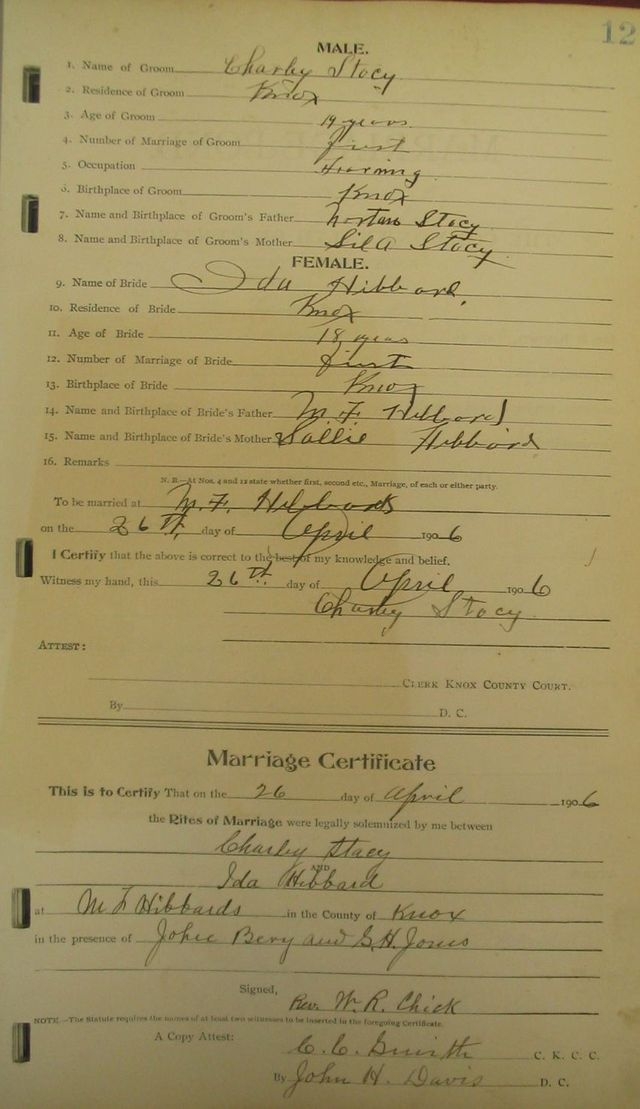 12
MALE.
1. Name of Groom Charley Stacy
2. Residence of Groom Knox
3. Age of Groom 19 years
4. Number of Marriage of Groom first
5. Occupation Farming
6. Birthplace of Groom Knox
7. Name and Birthplace of Groom's Father Stacy
8. Name and Birthplace of Groom's Mother Stacy
FEMALE.
9. Name of Bride Ida Hibbard
10. Residence of Bride Knox
11. Age of Bride 18 years
12. Number of Marriage of Bride first
13. Birthplace of Bride Knox
14. Name and Birthplace of Bride's Father M. F. Hibbard
15. Name and Birthplace of Bride's Mother Sallie Hibbard
16. Remarks
N. B.—At Nos. 4 and 12 state whether first, second etc., Marriage, of each or either party.
To be married at M. F. Hibbards
on the 26th day of April 1906
I Certify that the above is correct to the best of my knowledge and belief.
Witness my hand, this 26th day of April 1906
Charley Stacy
ATTEST:
CLERK KNOX COUNTY COURT.
By D. C.
Marriage Certificate
This is to Certify That on the 26 day of April 1906
the Rites of Marriage were legally solemnized by me between
Charley Stacy
AND
Ida Hibbard
at M F Hibbards in the County of Knox
in the presence of and G. H. Jones
Signed,
Rev. W. R. Chick
NOTE.—The Statute requires the names of at least two witnesses to be inserted in the foregoing Certificate.
A Copy Attest: C. C. Smith C. K. C. C.
By John H. Davis D. C.